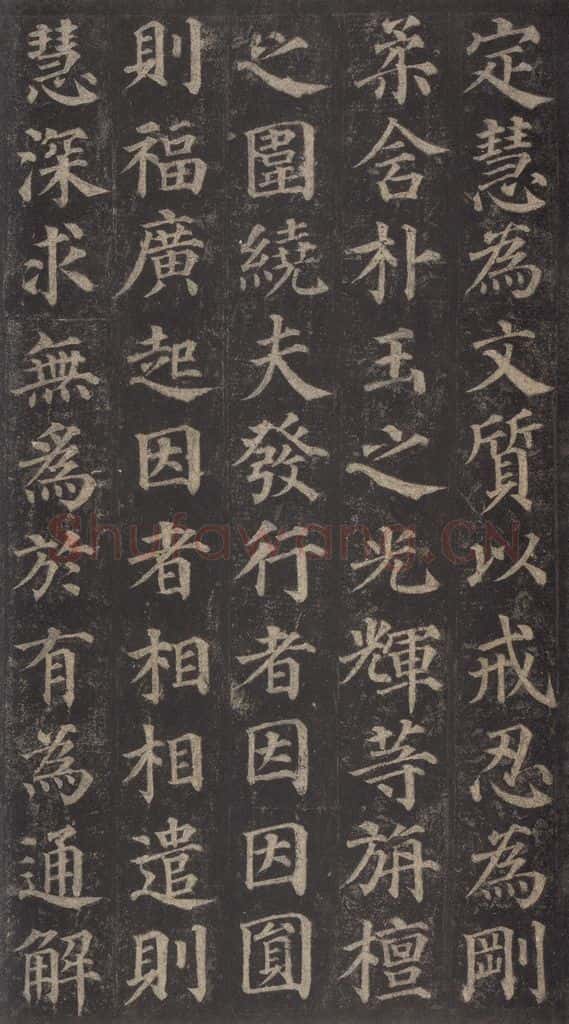 定慧為文質以戒忍為剛
柔含朴玉之光輝等旃檀
之圍繞夫發行者因因圓
則福廣起因者相相遣則
慧深求無為於有為通解
Shufawang.CN